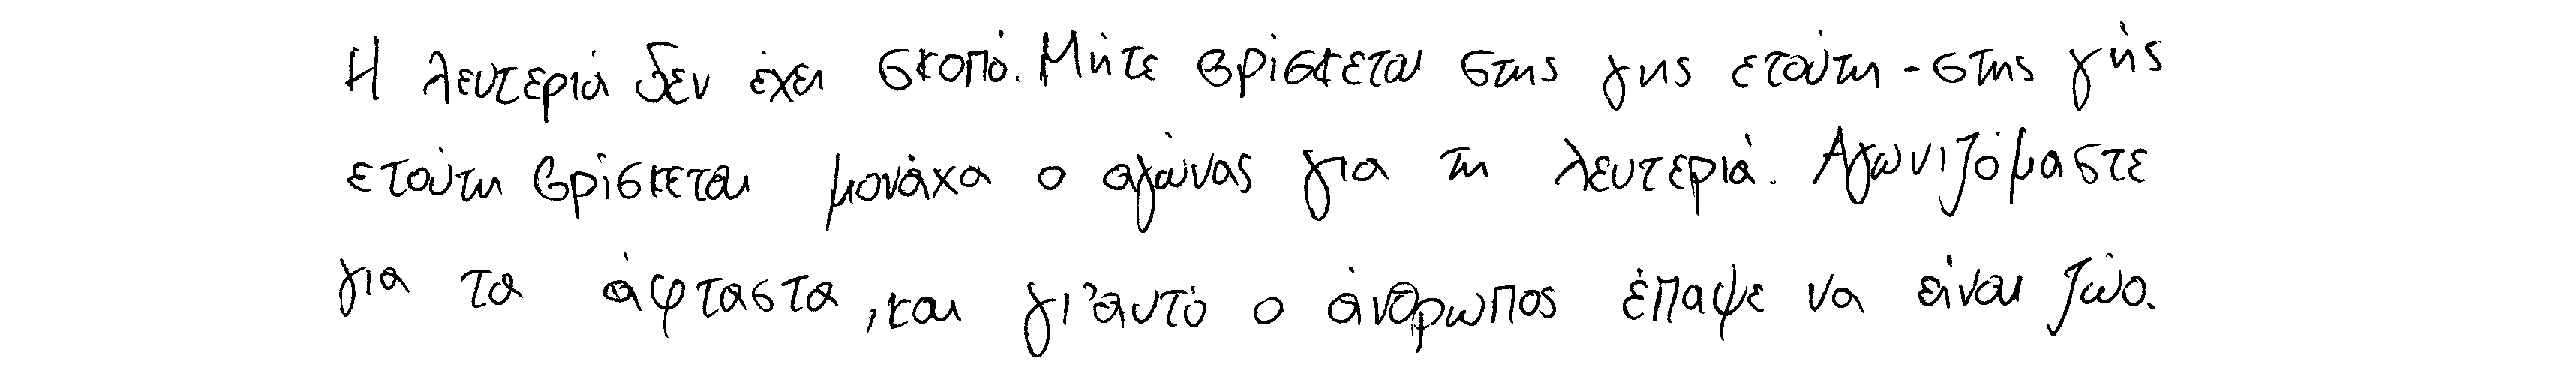 Η λευτεριά δεν έχει σκοπό. Μήτε βρίσκεται στης γης ετούτη - στης γής
ετούτη βρίσκεται μονάχα ο αγώνας για τη λευτεριά. Αγωνιζόμαστε
για τα άφταστα, και γι'αυτό ο άνθρωπος έπαψε να είναι ζώο.